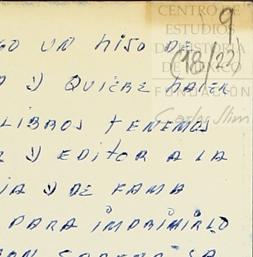 9
CENTRO DE
ESTUDIOS
DE HISTORIA
DE MÉXICO
FUNDACIÓN
Carlos Slim
(18/23)
GO UN HIJO DE
O Y QUIERE HACER
LIBROS TENEMOS
Y EDITOR A LA
IA Y DE FAMA
PARA IMPRIMIRLO